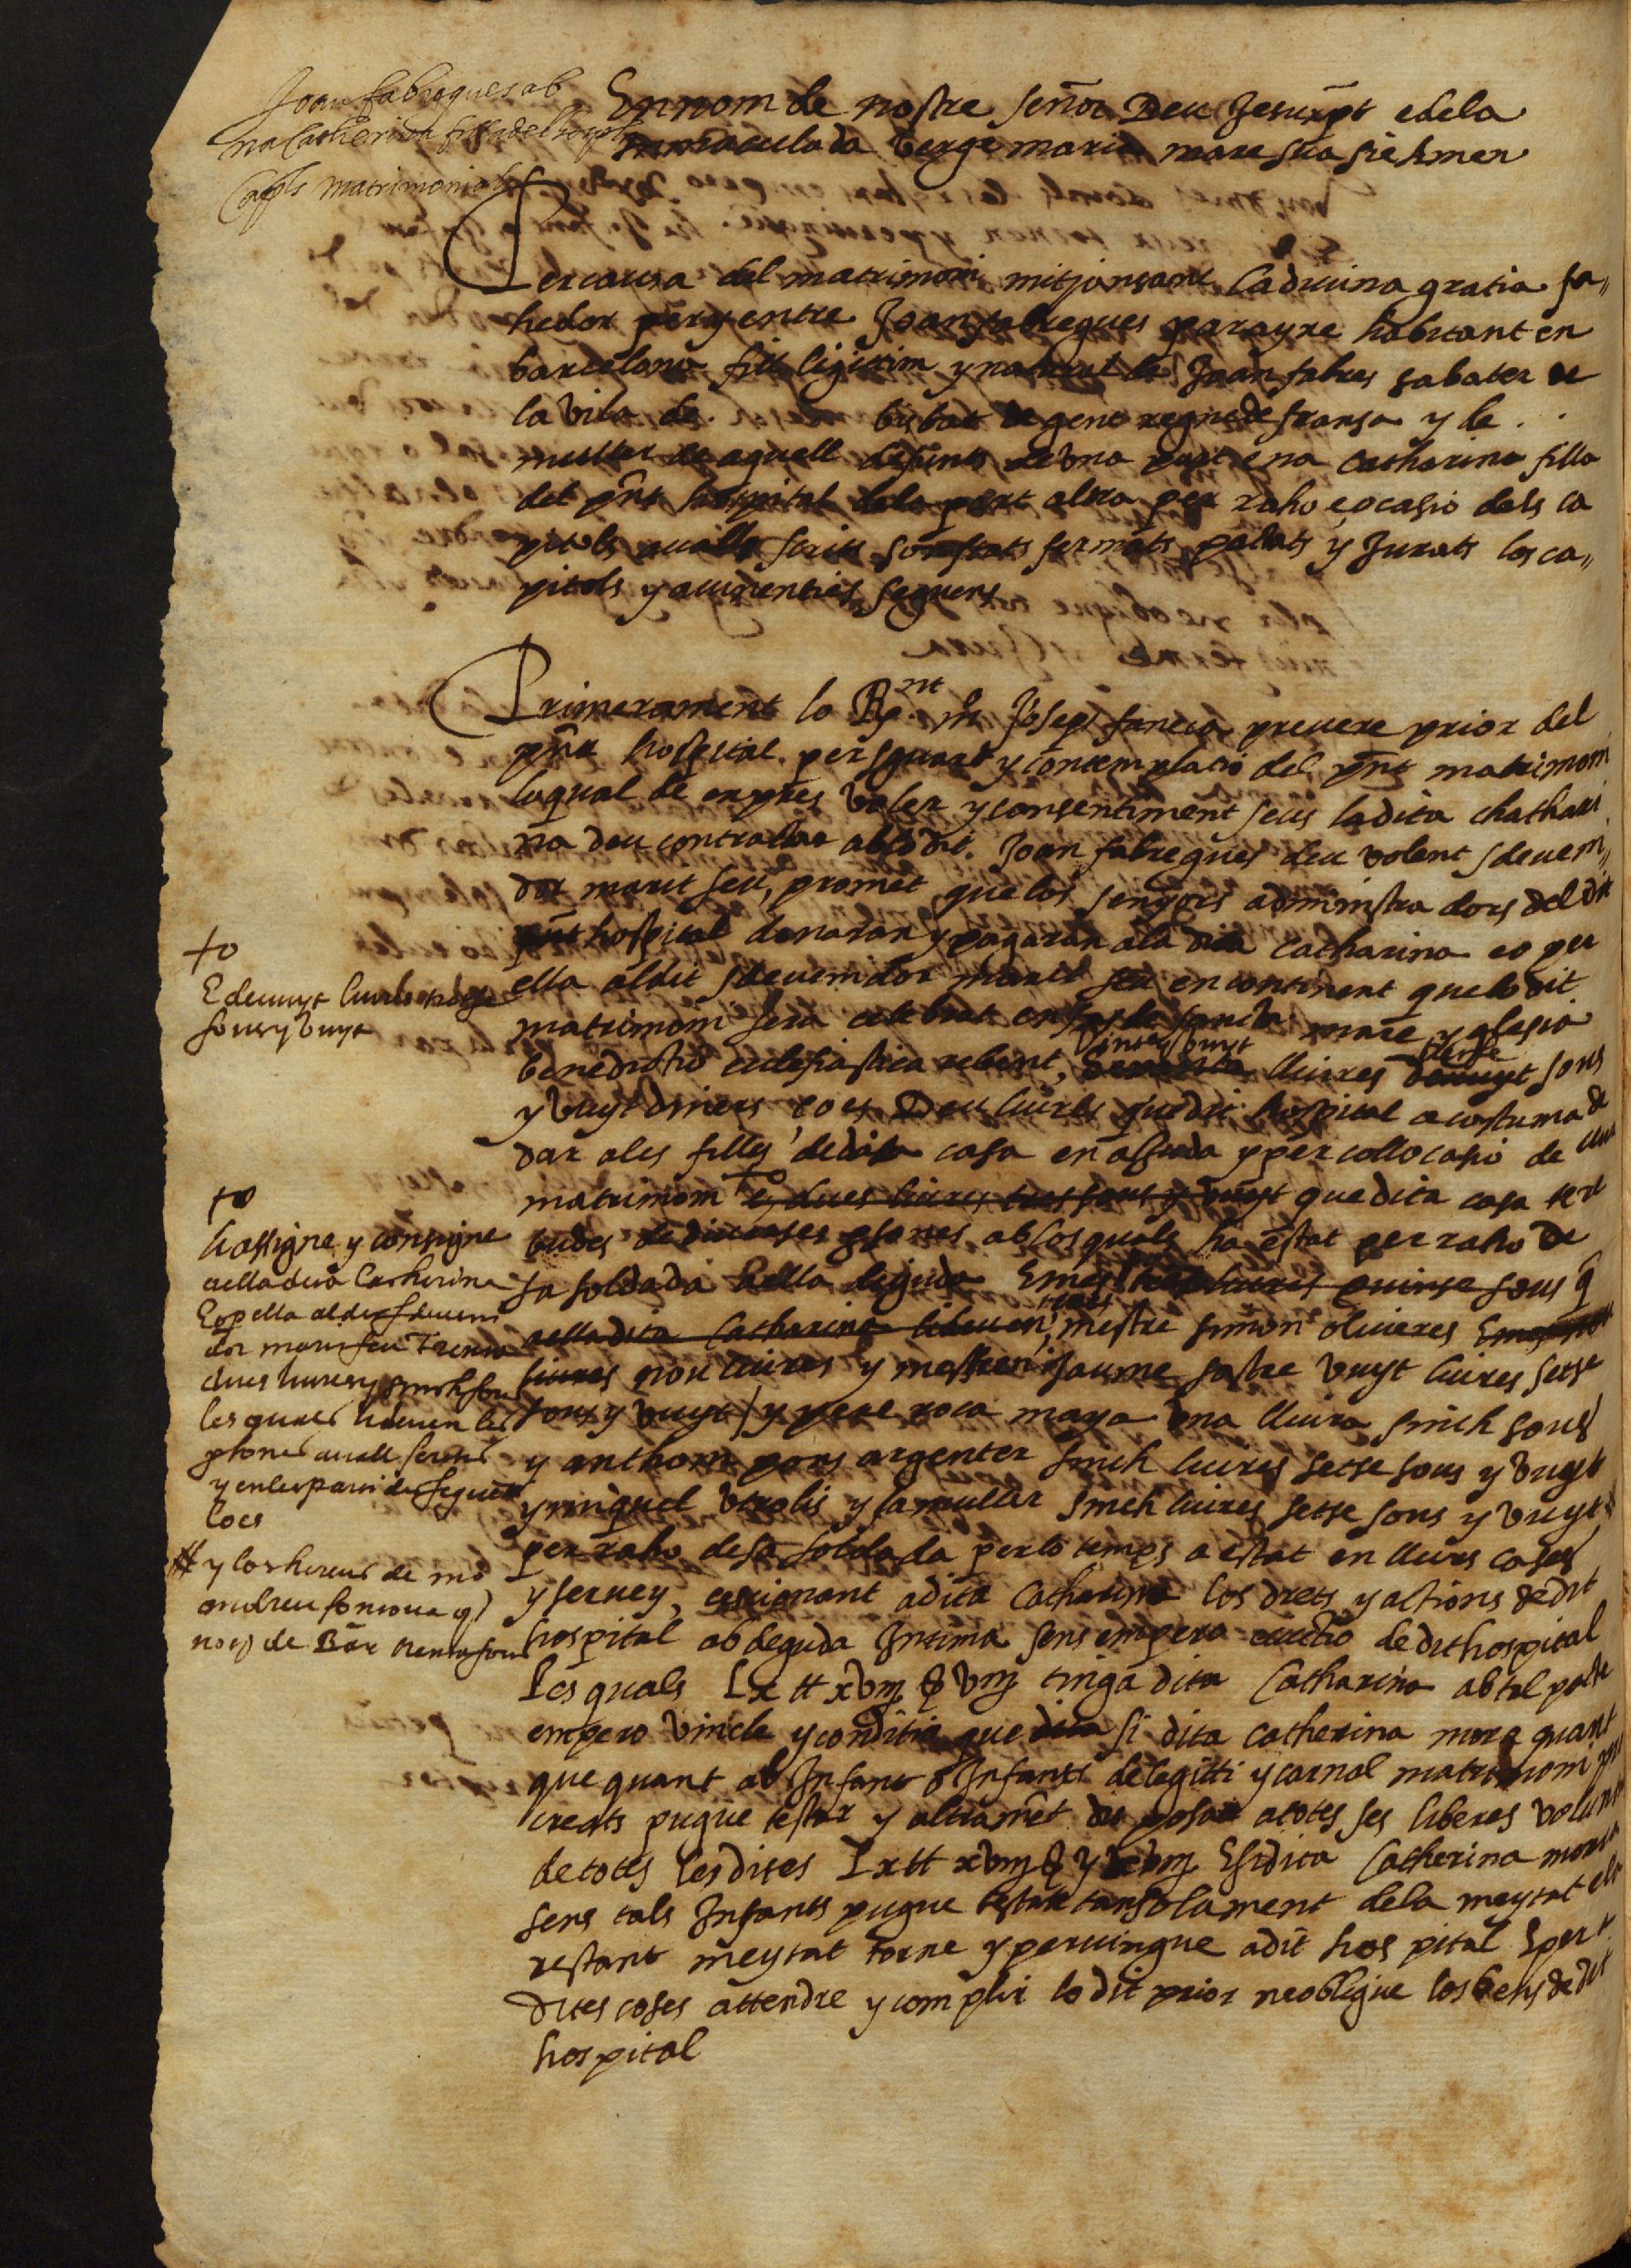 Joan fabregues ab
na Catherina filla del hospital
Capls matrimonials
En nom de nostre señor Deu Jesuxpt e de la
Inmaculada verge maria mare sua sie Amen
Per causa del matrimoni mitjansant la divina gratia fa„
hedor per y entre Joan fabregues parayre habitant en
barcelona fill ligitim y natural de Joan fabres sabater de
la vila de . bisbat de gent regne de fransa y de . .
muller de aquell defunts de una part e na Catharina filla
del pnt hospital de la part altra per raho e ocasio dels ca
pitols avall scrits son stats fermats pactats y Jurats los ca„
pitols y avinenties seguens
Primerament lo Rnt mn Joseph prevere prior del
pnt hospital per sguart y contemplatio del pnt matrimoni
loqual de exprés voler y consentiment seus la dita chathari
na deu contractar ab lo dit Joan fabregues deu volent sdeveni„
dor marit seu, promet que los senyors administradors del dit
pnt hospital donaran y pagaran a la dita Catharina eo per
ella al dit sdevenidor marit seu encontinent que lo dit
matrimoni sera celebrat en fas de sancta mare yglesia
benedictio ecclesiastica rebent, vint y vuyt lliures setse sous
y vuyt diners, ço es Deu lliures que dit hospital acostuma de
dar a les filles de dita casa en ajuda y per collocasio de llur
matrimoni to e dues lliures tres sous y vuyt que dita casa ha re
budes de diverses psones ab los quals ha estat per raho de
sa soldada a ella deguda E mes lliures quinse sous q
a ella dita Catharina li deuen, mestre simon oliveres
lliures nou lliures y mestre Jaume sastre vuyt lliures setse
sous y vuyt / y pere roca maya una lliura sinch sous
y anthoni pons argenter sinch lliures setse sous y vuyt
y miquel virolis y sa muller sinch lliures setse sous y vuyt #
per raho de sa soldada per lo temps a estat en llurs cases
y servey, cessionant a dita Catharina los drets y actions de dit
hospital ab deguda Intima sens empero evictio de dit hospital
Les quals Lx tt xviij s viij tinga dita Catharina ab tal pacte
empero vincle y conditio que dita si dita Catherina mora quant
que quant ab Infant o Infants de legitti y carnal matrimoni pro
creats pugue testar y altrament disposar a totes ses liberes volunt
de totes les dites Lx tt xviij s y viij E si dita Catherina morra
sens tals Infants pugue testar tansolament de la meytat e la
restant meytat torne y pervingue a dit hospital E per t
dites coses attendre y complir lo dit prior ne obligue los bens de dit
hospital
to
E denuyt lliures setse
sous y vuyt
to
li assigne y consigne
a ella dita Catherina
E o per ella al dit sdeveni
dor marit seu Trenta
dues lliures y sinch sous
les quals li deuen les
psones avall scrites
y en les partides seguents
ço es
# y los hereus de mo
andreu fontova q°
noy de Bar trenta sous